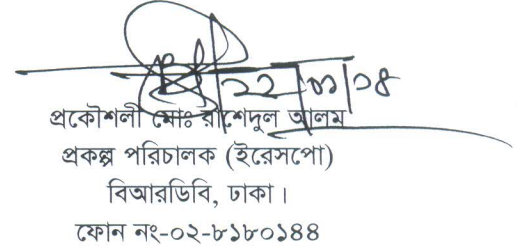 ২২/০১/১৪
প্রকৌশলী মোঃ রাশেদুল আলম
প্রকল্প পরিচালক (ইরেসপো)
বিআরডিবি, ঢাকা।
ফোন নং-০২-৮১৮০১৪৪